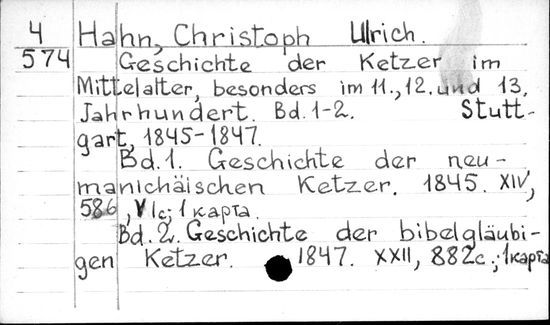 4 Hahn, Christoph Ulrich.
574 Geschichte der Ketzer im
Mittelalter, besonders im 11., 12. und 13.
Jahrhundert. Bd. 1-2. Stutt-
gart, 1845-1847.
Bd. 1. Geschichte der neu-
manichäischen Ketzer. 1845. XIV,
586, V lc; 1 карта.
Bd. 2. Geschichte der bibelgläubi-
gen Ketzer. 1847. XXII, 882c.; 1 карта